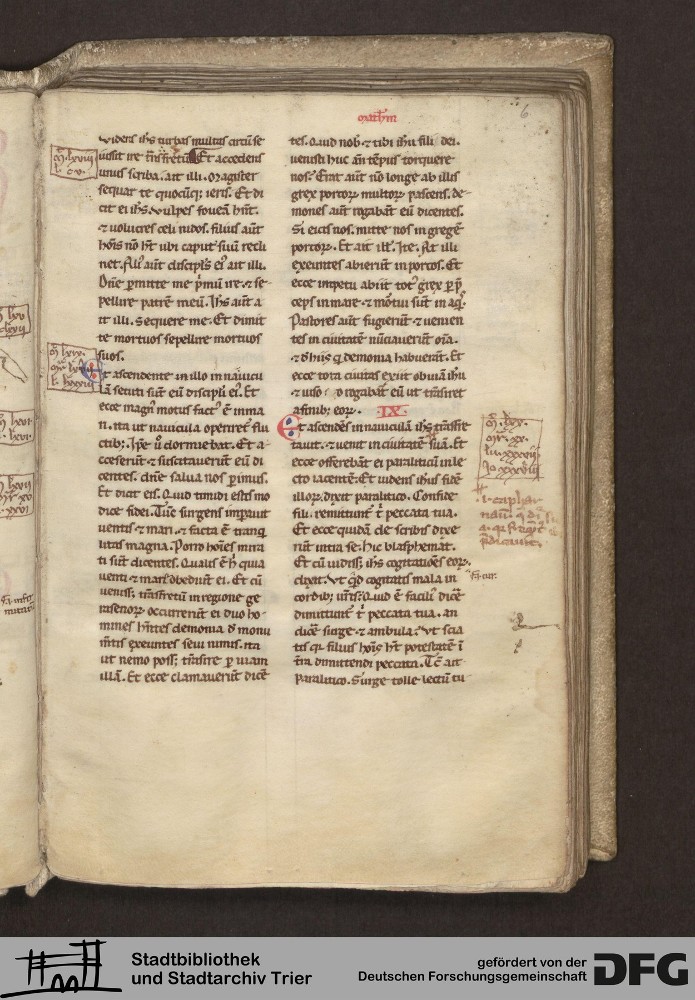 6
Videns ih̅s turbas multas circu̅ se
iussit ire t̅ns fretu̅. Et accedens
unus scriba. ait illi. Magister
sequar te quocu̅q; ieris. Et di
cit ei ih̅s. Vulpes fovea̅ hn̅t.
⁊ volucres celi nidos. filius aut̅
ho̅is no̅ ht̅ ubi caput suu̅ recli
net. Ali' aut̅ discipl's ei' ait illi.
Dn̅e p̱mitte me p̱mu̅ ire ⁊ se-
pelire patre̅ meu̅. Ih̅s aut̅ a
it illi. Sequere me. Et dimit
te mortuos sepelire mortuos
suos.
Et ascendente in illo in navicu
la̅ secuti su̅t eu̅ discip̱li ei'. Et
ecce magn' motus fact' e̅ in ma
ri. ita ut navicula operiret̅ flu
ctib;. Ip̅e u̅ dormiebat. Et a-
cceserut̅ ⁊ suscitaverut̅ eu̅ di
centes. dn̅e salva nos p̱imus.
Et dicit eis. Quid timidi estis mo
dice fidei. Tu̅c surgens imp̱avit
ventis ⁊ mari. ⁊ facta e̅ tranq̇
litas magna. Porro ho̅ies mira
ti su̅t dicentes. Qualis e̅ h' quia
venti ⁊ mare obediu̅t ei. Et cu̅
veniss; t̅nsfretu̅ in regione ge
rasenoꝝ occurrerut̅ ei duo ho-
mines hn̅tes demonia d̓ monu
m̅tis exeuntes sevi nimis. ita
ut nemo poss; tra̅sire p̱ viam
illa̅. Et ecce clamaverut̅ dice̅
math̅m
tes. Quid nob' ⁊ tibi ih̅u fili dei.
venisti huc an̅ te̅pus torquere
nos? Erat aut̅ no̅ longe ab illis
grex porcoꝝ multoꝝ pascens. de-
mones aut̅ rogabant eu̅ dicentes.
Si eicis nos. mitte nos in grege̅
porcoꝝ. Et ait ill'. Ite. At illi
exeuntes abierut̅ in porcos. Et
ecce inpetu abiit tot' grex p̱ p̱
ceps in mare. ⁊ mo̅tui su̅t in aq̇s
Pastores aut̅ fugierut̅ ⁊ venien
tes in civitate̅ nu̅ciaverut̅ o̅ia.
⁊ d̓ hiis q̇ demonia habuerut̅. Et
ecce tota civitas exiit obvia̅ ih̅u
⁊ viso eo rogabat̅ eu̅ ut tra̅siret
a finib; eoꝝ. IX.
Et ascende̅s in navicula̅ ih̅s tra̅sfre
tavit. ⁊ venit in civitate̅ sua̅. Et
ecce offereba̅t ei paraliticu̅ in le
cto iacente̅. Et videns ih̅us fide̅
illoꝝ. dixit paralitico. Confide
fili. remittunt̅ t̅ peccata tua.
Et ecce quida̅ de scribis dixe
rut̅ intra se. hic blasphemat.
Et cu̅ vidiss; ih̅s cogitatio̅es eoꝝ.
dixit. Ut q̇d cogitatis mala in
cordib; ur̅is. Quid e̅ facili' dic̅e
dimittunt̅ t̅ peccata tua. an
dic̅e surge ⁊ ambula? Ut scia
tis q̇ filius ho̅is ht̅ potestate̅ i̅
t̅ra dimittendi peccata. Tc̅ ait
Paralitico. Surge tolle lectu̅ tu
Stadtbibliothek
und Stadtarchiv Trier
gefördert von der
Deutschen Forschungsgemeinschaft
DFG